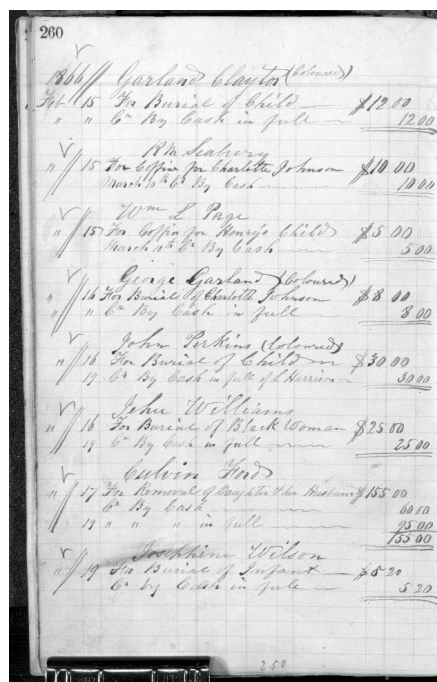 260
1866 Garland Clayton (Coloured)
Feb 15 For Burial of Child $12 00
" " Cr By Cash in full 12 00
R M Seabury
" 15 For Coffin for Charlotte Johnson $10 00
March 10th Cr By Cash 10 00
Wm L Page
" 15 For Coffin for Henry's Child $5 00
March 11th Cr By Cash 5 00
George Garland (Coloured)
" 16 For Burial of Charlotte Johnson $8 00
" " Cr By Cash in full 8 00
John Perkins (Coloured)
" 16 For Burial of Child $30 00
19 Cr By Cash in full of L Harrison 30 00
Jehu Williams
" 16 For Burial of Black Woman $25 00
19 Cr By Cash in full 25 00
Culvin Ford
" 17 For Removal of Daughter & her Husband $155 00
Cr By Cash 60 00
19 " " " in full 95 00
155 00
Josephine Wilson
" 19 For Burial of Infant $5 20
Cr by Cash in full 5 20
250